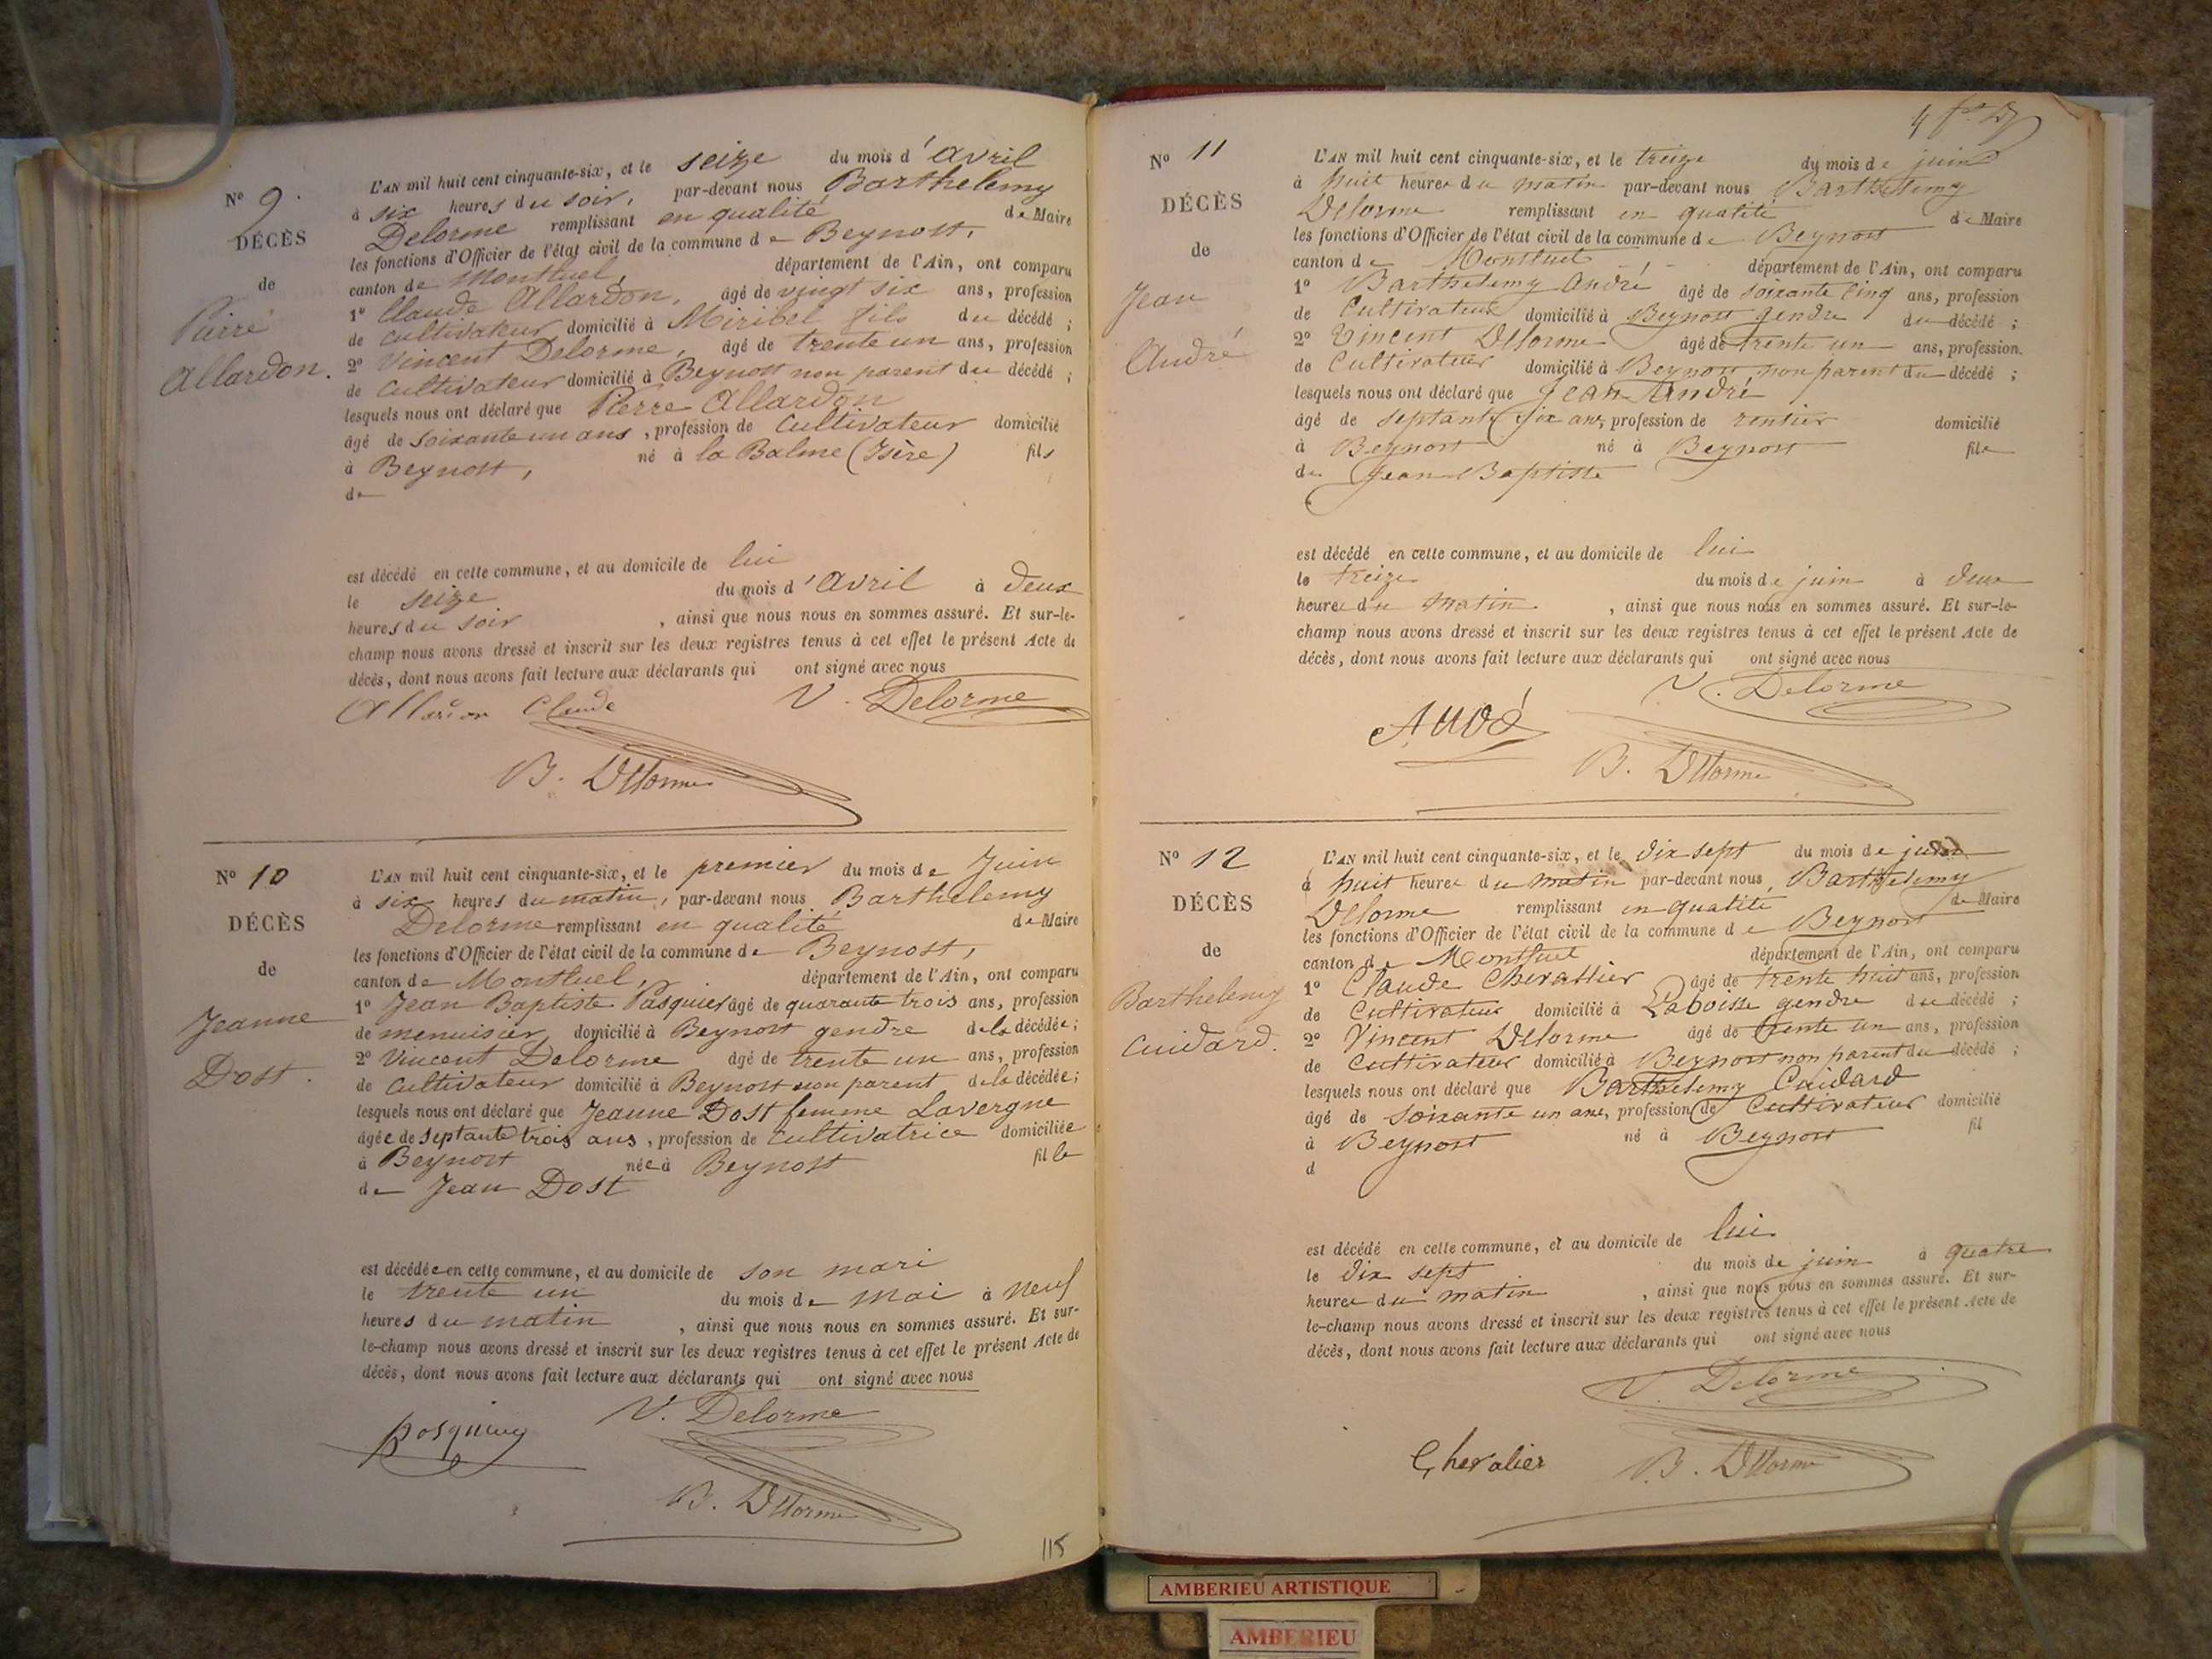 N° 9.
DÉCÈS
de
Pierre
Allardon.
L'AN mil huit cent cinquante-six, et le seize du mois d'Avril
à six heures du soir, par-devant nous Barthelemy
Delorme remplissant en qualité de Maire
les fonctions d'Officier de l'état civil de la commune de Beynost,
canton de Montluel, département de l'Ain, ont comparu
1° Claude Allardon, âgé de vingt six ans, profession
de cultivateur domicilié à Miribel fils du décédé ;
2° Vincent Delorme, âgé de trente un ans, profession
de cultivateur domicilié à Beynost non parent du décédé ;
lesquels nous ont déclaré que Pierre Allardon
âgé de soixante un ans, profession de Cultivateur domicilié
à Beynost, né à la Balme (Isère) fils
de
est décédé en cette commune, et au domicile de lui
le seize du mois d'Avril à deux
heures du soir, ainsi que nous nous en sommes assuré. Et sur-le-
champ nous avons dressé et inscrit sur les deux registres tenus à cet effet le présent Acte de
décès, dont nous avons fait lecture aux déclarants qui ont signé avec nous
Allardon Claude V. Delorme
B. Delorme
N° 10
DÉCÈS
de
Jeanne
Dost.
L'AN mil huit cent cinquante-six, et le premier du mois de Juin
à six heures du matin, par-devant nous Barthelemy
Delorme remplissant en qualité de Maire
les fonctions d'Officier de l'état civil de la commune de Beynost,
canton de Montluel, département de l'Ain, ont comparu
1° Jean Baptiste Pasquier âgé de quarante trois ans, profession
de menuisier domicilié à Beynost gendre de la décédée ;
2° Vincent Delorme âgé de trente un ans, profession
de cultivateur domicilié à Beynost non parent de la décédée ;
lesquels nous ont déclaré que Jeanne Dost femme Lavergne
âgée de septante trois ans, profession de cultivatrice domiciliée
à Beynost née à Beynost fille
de Jean Dost
est décédée en cette commune, et au domicile de son mari
le trente un du mois de mai à neuf
heures du matin, ainsi que nous nous en sommes assuré. Et sur-
le-champ nous avons dressé et inscrit sur les deux registres tenus à cet effet le présent Acte de
décès, dont nous avons fait lecture aux déclarants qui ont signé avec nous
V. Delorme
B. Delorme
115
N° 11
DÉCÈS
de
Jean
André
L'AN mil huit cent cinquante-six, et le treize du mois de juin
à huit heures du matin par-devant nous Barthelemy
Delorme remplissant en qualité de Maire
les fonctions d'Officier de l'état civil de la commune de Beynost
canton de Montluel département de l'Ain, ont comparu
1° Barthelemy André âgé de soixante cinq ans, profession
de Cultivateur domicilié à Beynost gendre du décédé ;
2° Vincent Delorme âgé de trente un ans, profession.
de Cultivateur domicilié à Beynost non parent du décédé ;
lesquels nous ont déclaré que Jean André
âgé de septante six ans, profession de rentier domicilié
à Beynost né à Beynost fils
de Jean Baptiste
est décédé en cette commune, et au domicile de lui
le treize du mois de juin à deux
heures du matin, ainsi que nous nous en sommes assuré. Et sur-le-
champ nous avons dressé et inscrit sur les deux registres tenus à cet effet le présent Acte de
décès, dont nous avons fait lecture aux déclarants qui ont signé avec nous
V. Delorme
B. Delorme
N° 12
DÉCÈS
de
Barthelemy
Cuidard.
L'AN mil huit cent cinquante-six, et le dix sept du mois de juin
à huit heures du matin par-devant nous, Barthelemy
Delorme remplissant en qualité de Maire
les fonctions d'Officier de l'état civil de la commune de Beynost
canton de Montluel département de l'Ain, ont comparu
1° Claude Chevallier âgé de trente huit ans, profession
de Cultivateur domicilié à Laboisse gendre du décédé ;
2° Vincent Delorme âgé de trente un ans, profession
de Cultivateur domicilié à Beynost non parent du décédé ;
lesquels nous ont déclaré que Barthelemy Cuidard
âgé de soixante un ans, profession de Cultivateur domicilié
à Beynost né à Beynost fil
d
est décédé en cette commune, et au domicile de lui
le dix sept du mois de juin à quatre
heures du matin, ainsi que nous nous en sommes assuré. Et sur-
le-champ nous avons dressé et inscrit sur les deux registres tenus à cet effet le présent Acte de
décès, dont nous avons fait lecture aux déclarants qui ont signé avec nous
V. Delorme
Chevalier B. Delorme
AMBERIEU ARTISTIQUE
AMBERIEU